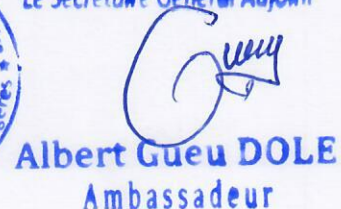 Le Secrétaire Général Adjoint
Albert Gueu DOLE
Ambassadeur